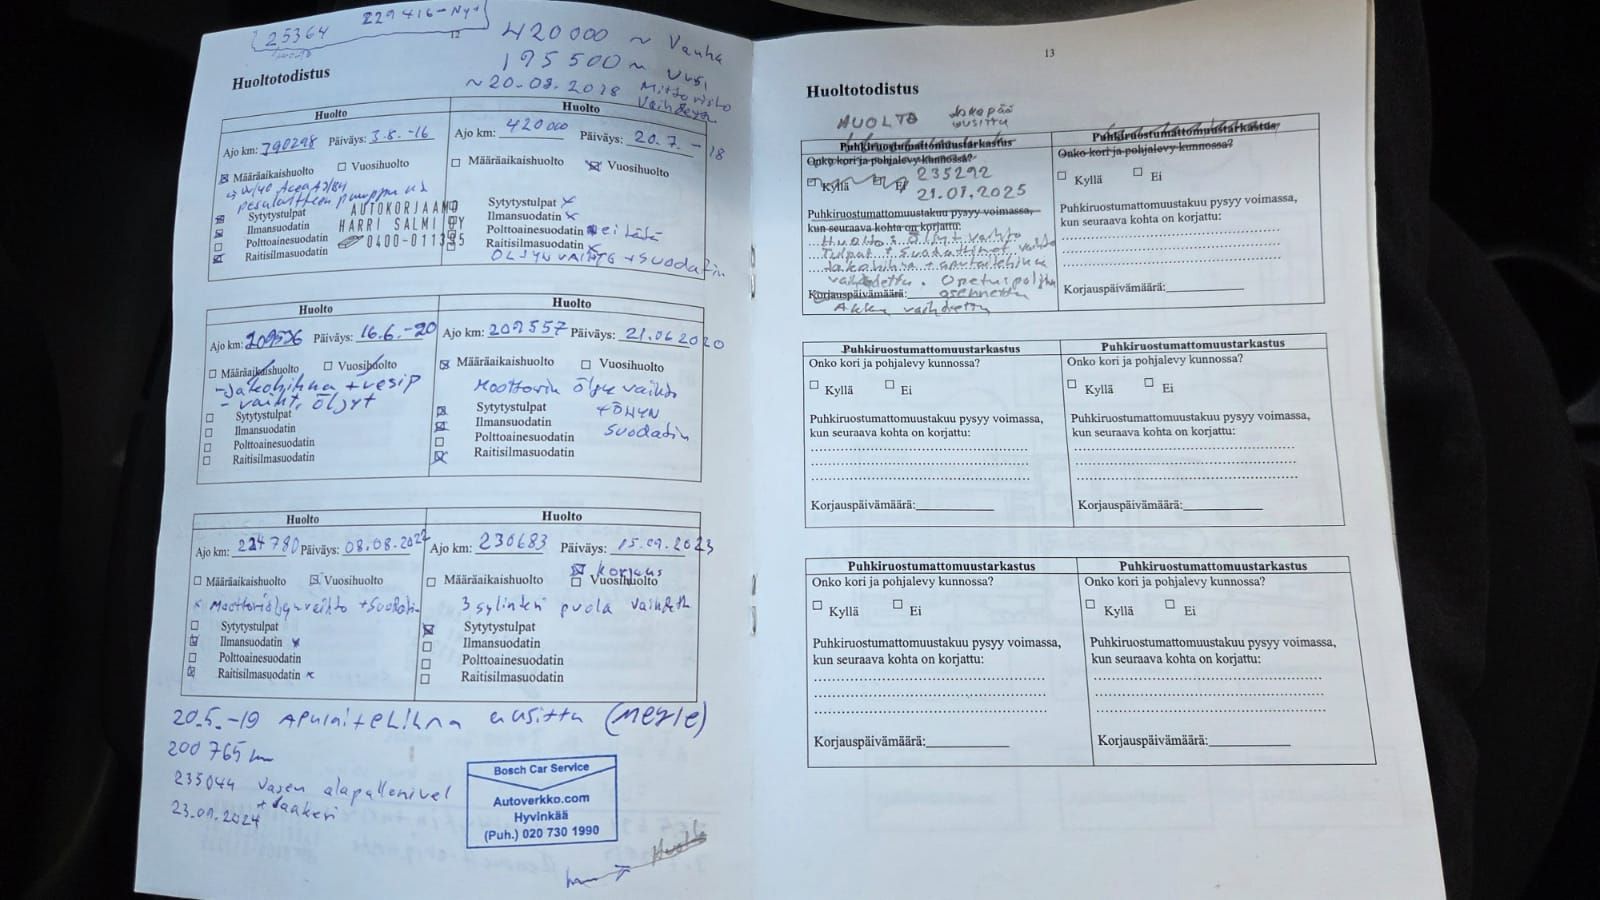 25364
229416-Nyt
12
420000 ~ Vanha
195500 ~ Uusi
~20.08.2018 Mittaristo
Huoltotodistus
Huolto
Ajo km: 390298 Päiväys: 3.8.-16
Määräaikaishuolto Vuosihuolto
Sytytystulpat
Ilmansuodatin
Polttoainesuodatin
Raitisilmasuodatin
AUTOKORJAAMO
HARRI SALMI OY
0400-011395
Huolto
Ajo km: 420000 Päiväys: 20.7.-18
Määräaikaishuolto Vuosihuolto
Sytytystulpat x
Ilmansuodatin x
Polttoainesuodatin ei tässä
Raitisilmasuodatin x
ÖLJYN VAIHTO + suodatin
Huolto
Ajo km: 209536 Päiväys: 16.6.-20
Määräaikaishuolto Vuosihuolto
-Jakohihna + vesip
- vaiht. öljyt
Sytytystulpat
Ilmansuodatin
Polttoainesuodatin
Raitisilmasuodatin
Huolto
Ajo km: 209557 Päiväys: 21.06.2020
Määräaikaishuolto Vuosihuolto
Moottorin öljyn vaihto
Sytytystulpat
Ilmansuodatin
Polttoainesuodatin
Raitisilmasuodatin
suodatin
Huolto
Ajo km: 224780 Päiväys: 08.08.2022
Määräaikaishuolto Vuosihuolto
x Moottoriöljynvaihto + suodatin
Sytytystulpat
Ilmansuodatin x
Polttoainesuodatin
Raitisilmasuodatin x
Huolto
Ajo km: 230683 Päiväys: 15.09.2023
korjaus
Määräaikaishuolto Vuosihuolto
3 sylinteri puola vaihdettu
Sytytystulpat
Ilmansuodatin
Polttoainesuodatin
Raitisilmasuodatin
20.5.-19 Apulaitehihna uusittu
200 765 km
235044 vasen alapallonivel
+ laakeri
23.01.2024
Bosch Car Service
Autoverkko.com
Hyvinkää
(Puh.) 020 730 1990
Huolto
13
Huoltotodistus
HUOLTO Jakopää
uusittu
Puhkiruostumattomuustarkastus
Onko kori ja pohjalevy kunnossa?
Kyllä Ei
235292
21.01.2025
Puhkiruostumattomuustakuu pysyy voimassa,
kun seuraava kohta on korjattu:
Huolto: Öljyt vaihto
Tulpat + Suodattimet vaihto
Jakohihna + apulaitehihna
vaihdettu. Opetuspoljin
Korjauspäivämäärä: asennettu
Akku vaihdettu
Puhkiruostumattomuustarkastus
Onko kori ja pohjalevy kunnossa?
Kyllä Ei
Puhkiruostumattomuustakuu pysyy voimassa,
kun seuraava kohta on korjattu:
Korjauspäivämäärä:
Puhkiruostumattomuustarkastus
Onko kori ja pohjalevy kunnossa?
Kyllä Ei
Puhkiruostumattomuustakuu pysyy voimassa,
kun seuraava kohta on korjattu:
Korjauspäivämäärä:
Puhkiruostumattomuustarkastus
Onko kori ja pohjalevy kunnossa?
Kyllä Ei
Puhkiruostumattomuustakuu pysyy voimassa,
kun seuraava kohta on korjattu:
Korjauspäivämäärä:
Puhkiruostumattomuustarkastus
Onko kori ja pohjalevy kunnossa?
Kyllä Ei
Puhkiruostumattomuustakuu pysyy voimassa,
kun seuraava kohta on korjattu:
Korjauspäivämäärä:
Puhkiruostumattomuustarkastus
Onko kori ja pohjalevy kunnossa?
Kyllä Ei
Puhkiruostumattomuustakuu pysyy voimassa,
kun seuraava kohta on korjattu:
Korjauspäivämäärä: